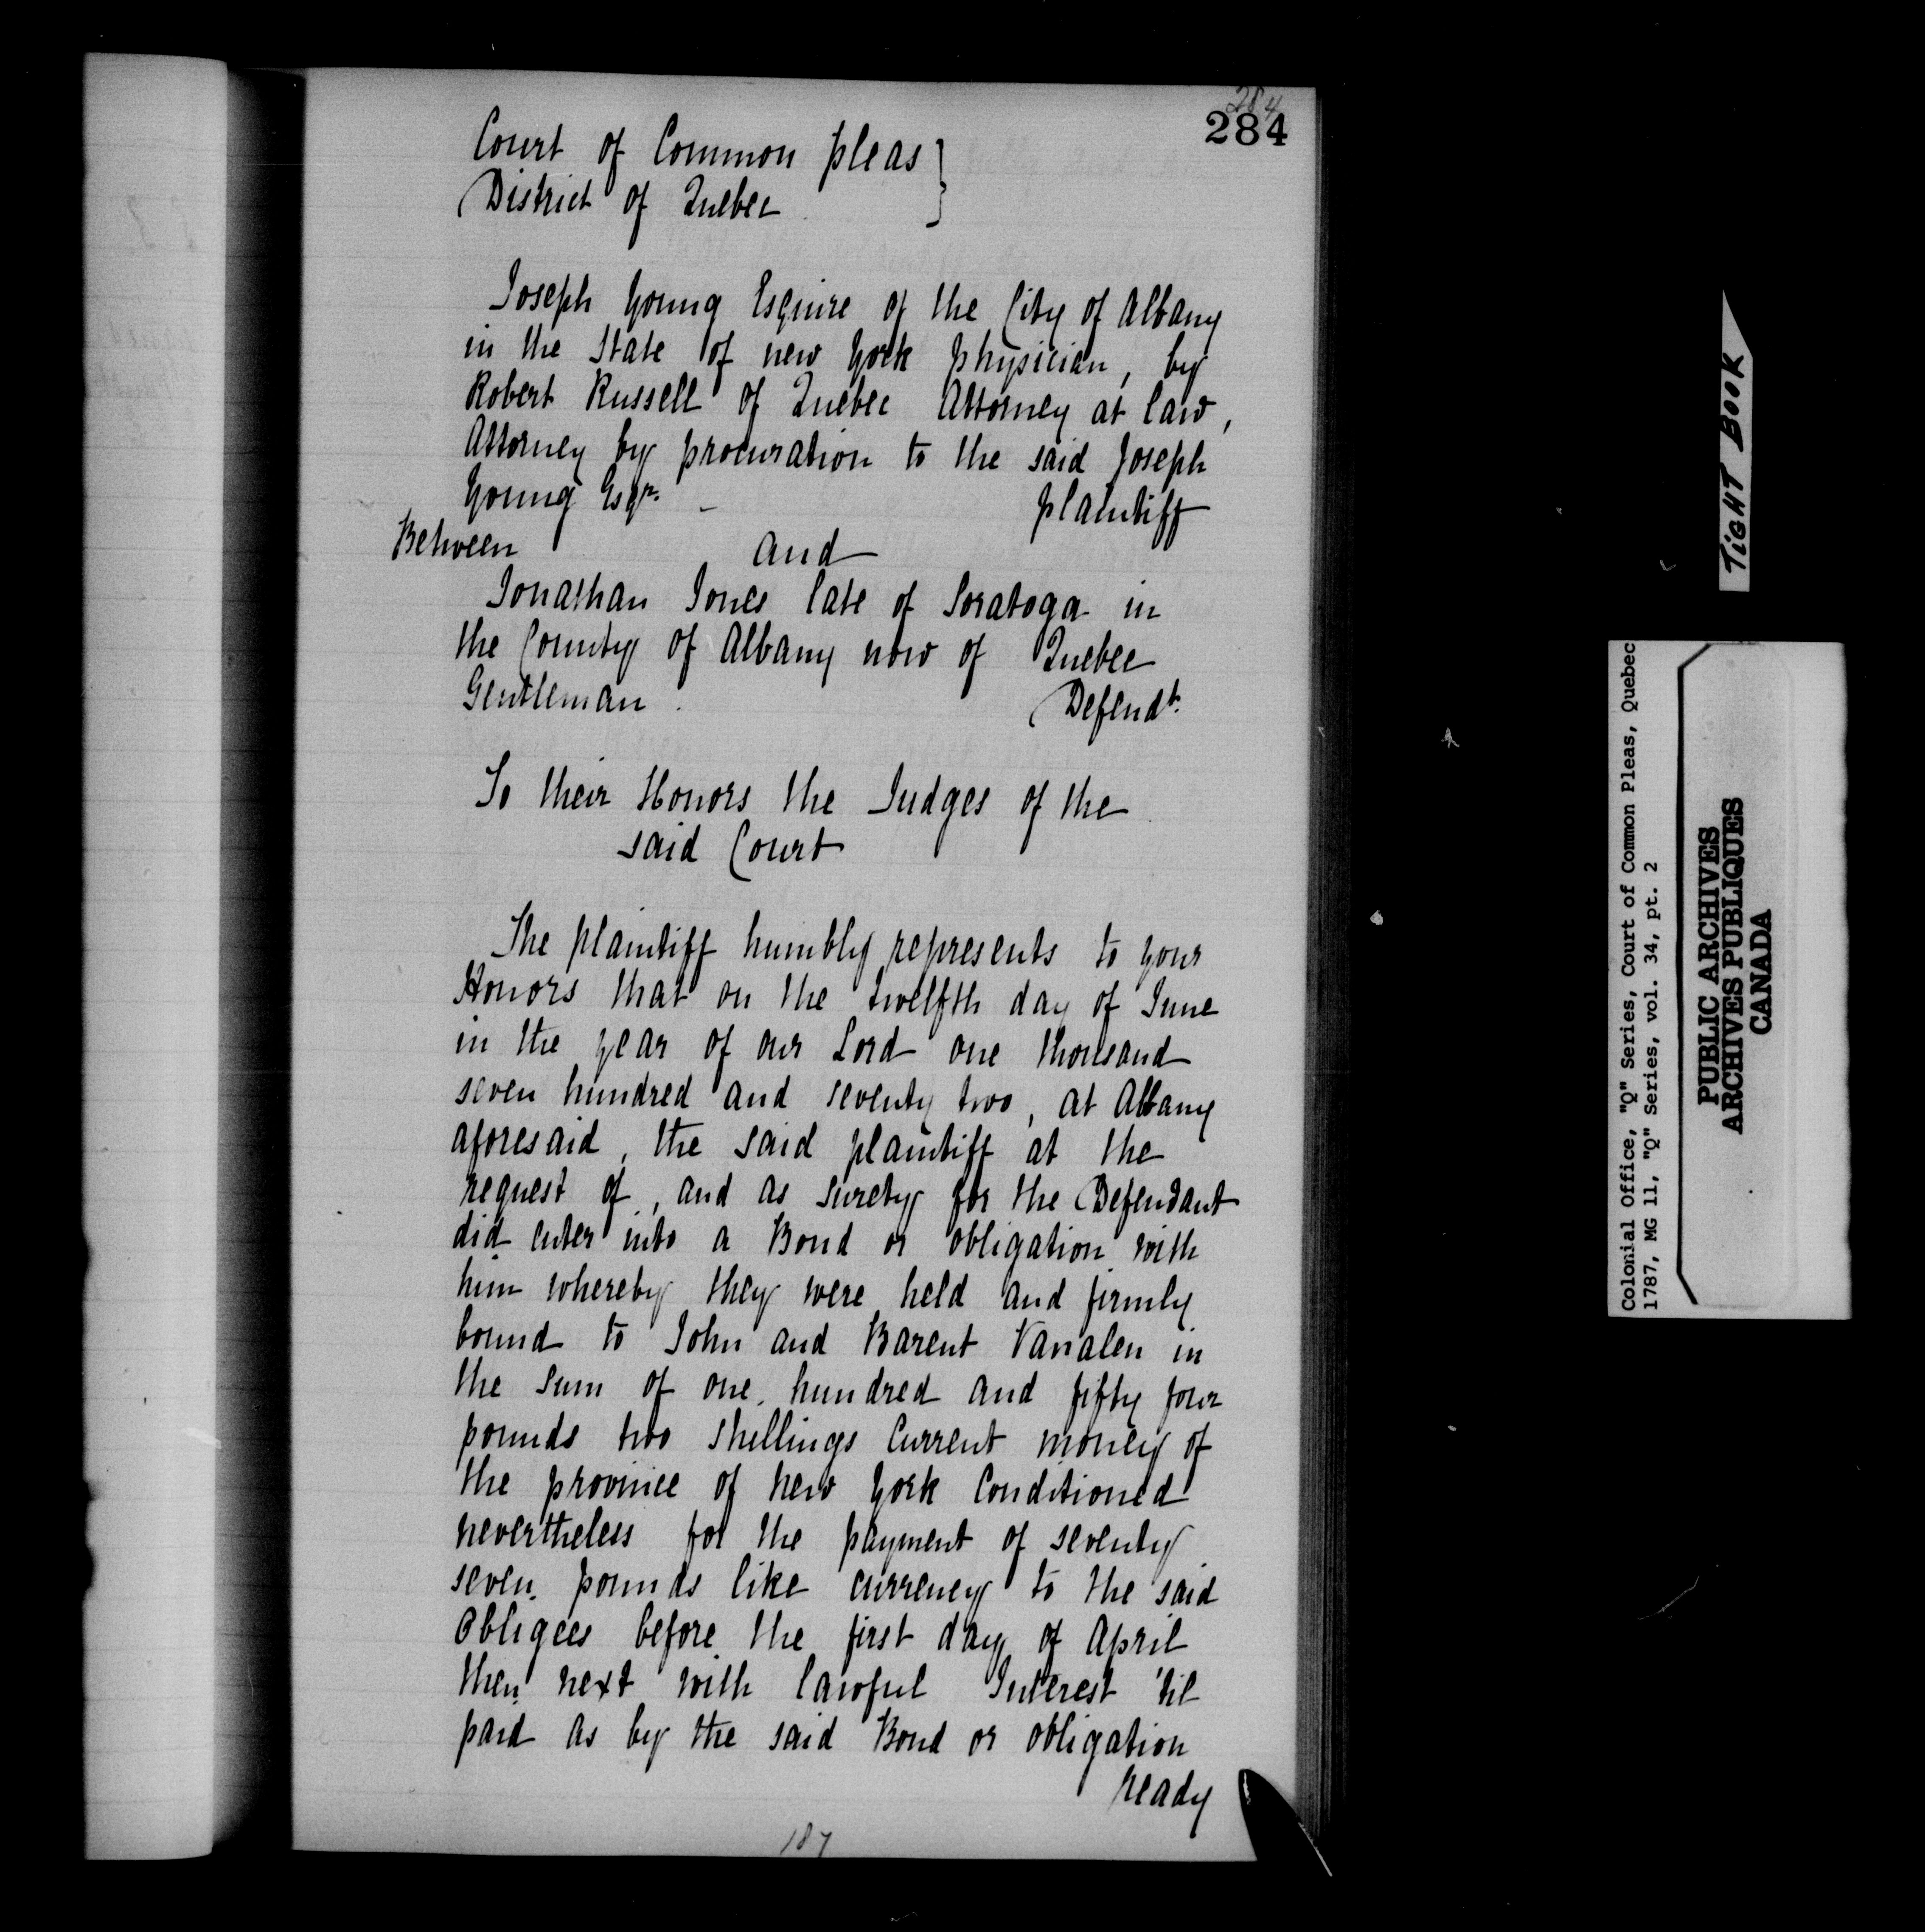 284
284
Court of Common pleas }
District of Quebec
Joseph Young Esquire of the City of Albany
in the State of new York physician, by
Robert Russell of Quebec Attorney at law,
Attorney by procuration to the said Joseph
Young Esqr. - plaintiff
Between and
Jonathan Jones late of Soratoga in
the County of Albany now of Quebec
Gentleman. Defendt.
To their Honors the Judges of the
said Court
The plaintiff humbly represents to your
Honors that on the twelfth day of June
in the year of our Lord one thousand
seven hundred and seventy two, at Albany
aforesaid, the said plaintiff at the
request of, and as surety for the Defendant
did enter into a Bond or obligation with
him whereby they were held and firmly
bound to John and Barent Vanalen in
the sum of one hundred and fifty four
pounds two shillings Current money of
the province of New York Conditioned
nevertheless for the payment of seventy
seven pounds like currency to the said
Obligees before the first day of April
then next with lawful Interest 'til
paid as by the said Bond or obligation
ready
187
TIGHT BOOK
Colonial Office, "Q" Series, Court of Common Pleas, Quebec
1787, MG 11, "Q" Series, vol. 34, pt. 2
PUBLIC ARCHIVES
ARCHIVES PUBLIQUES
CANADA